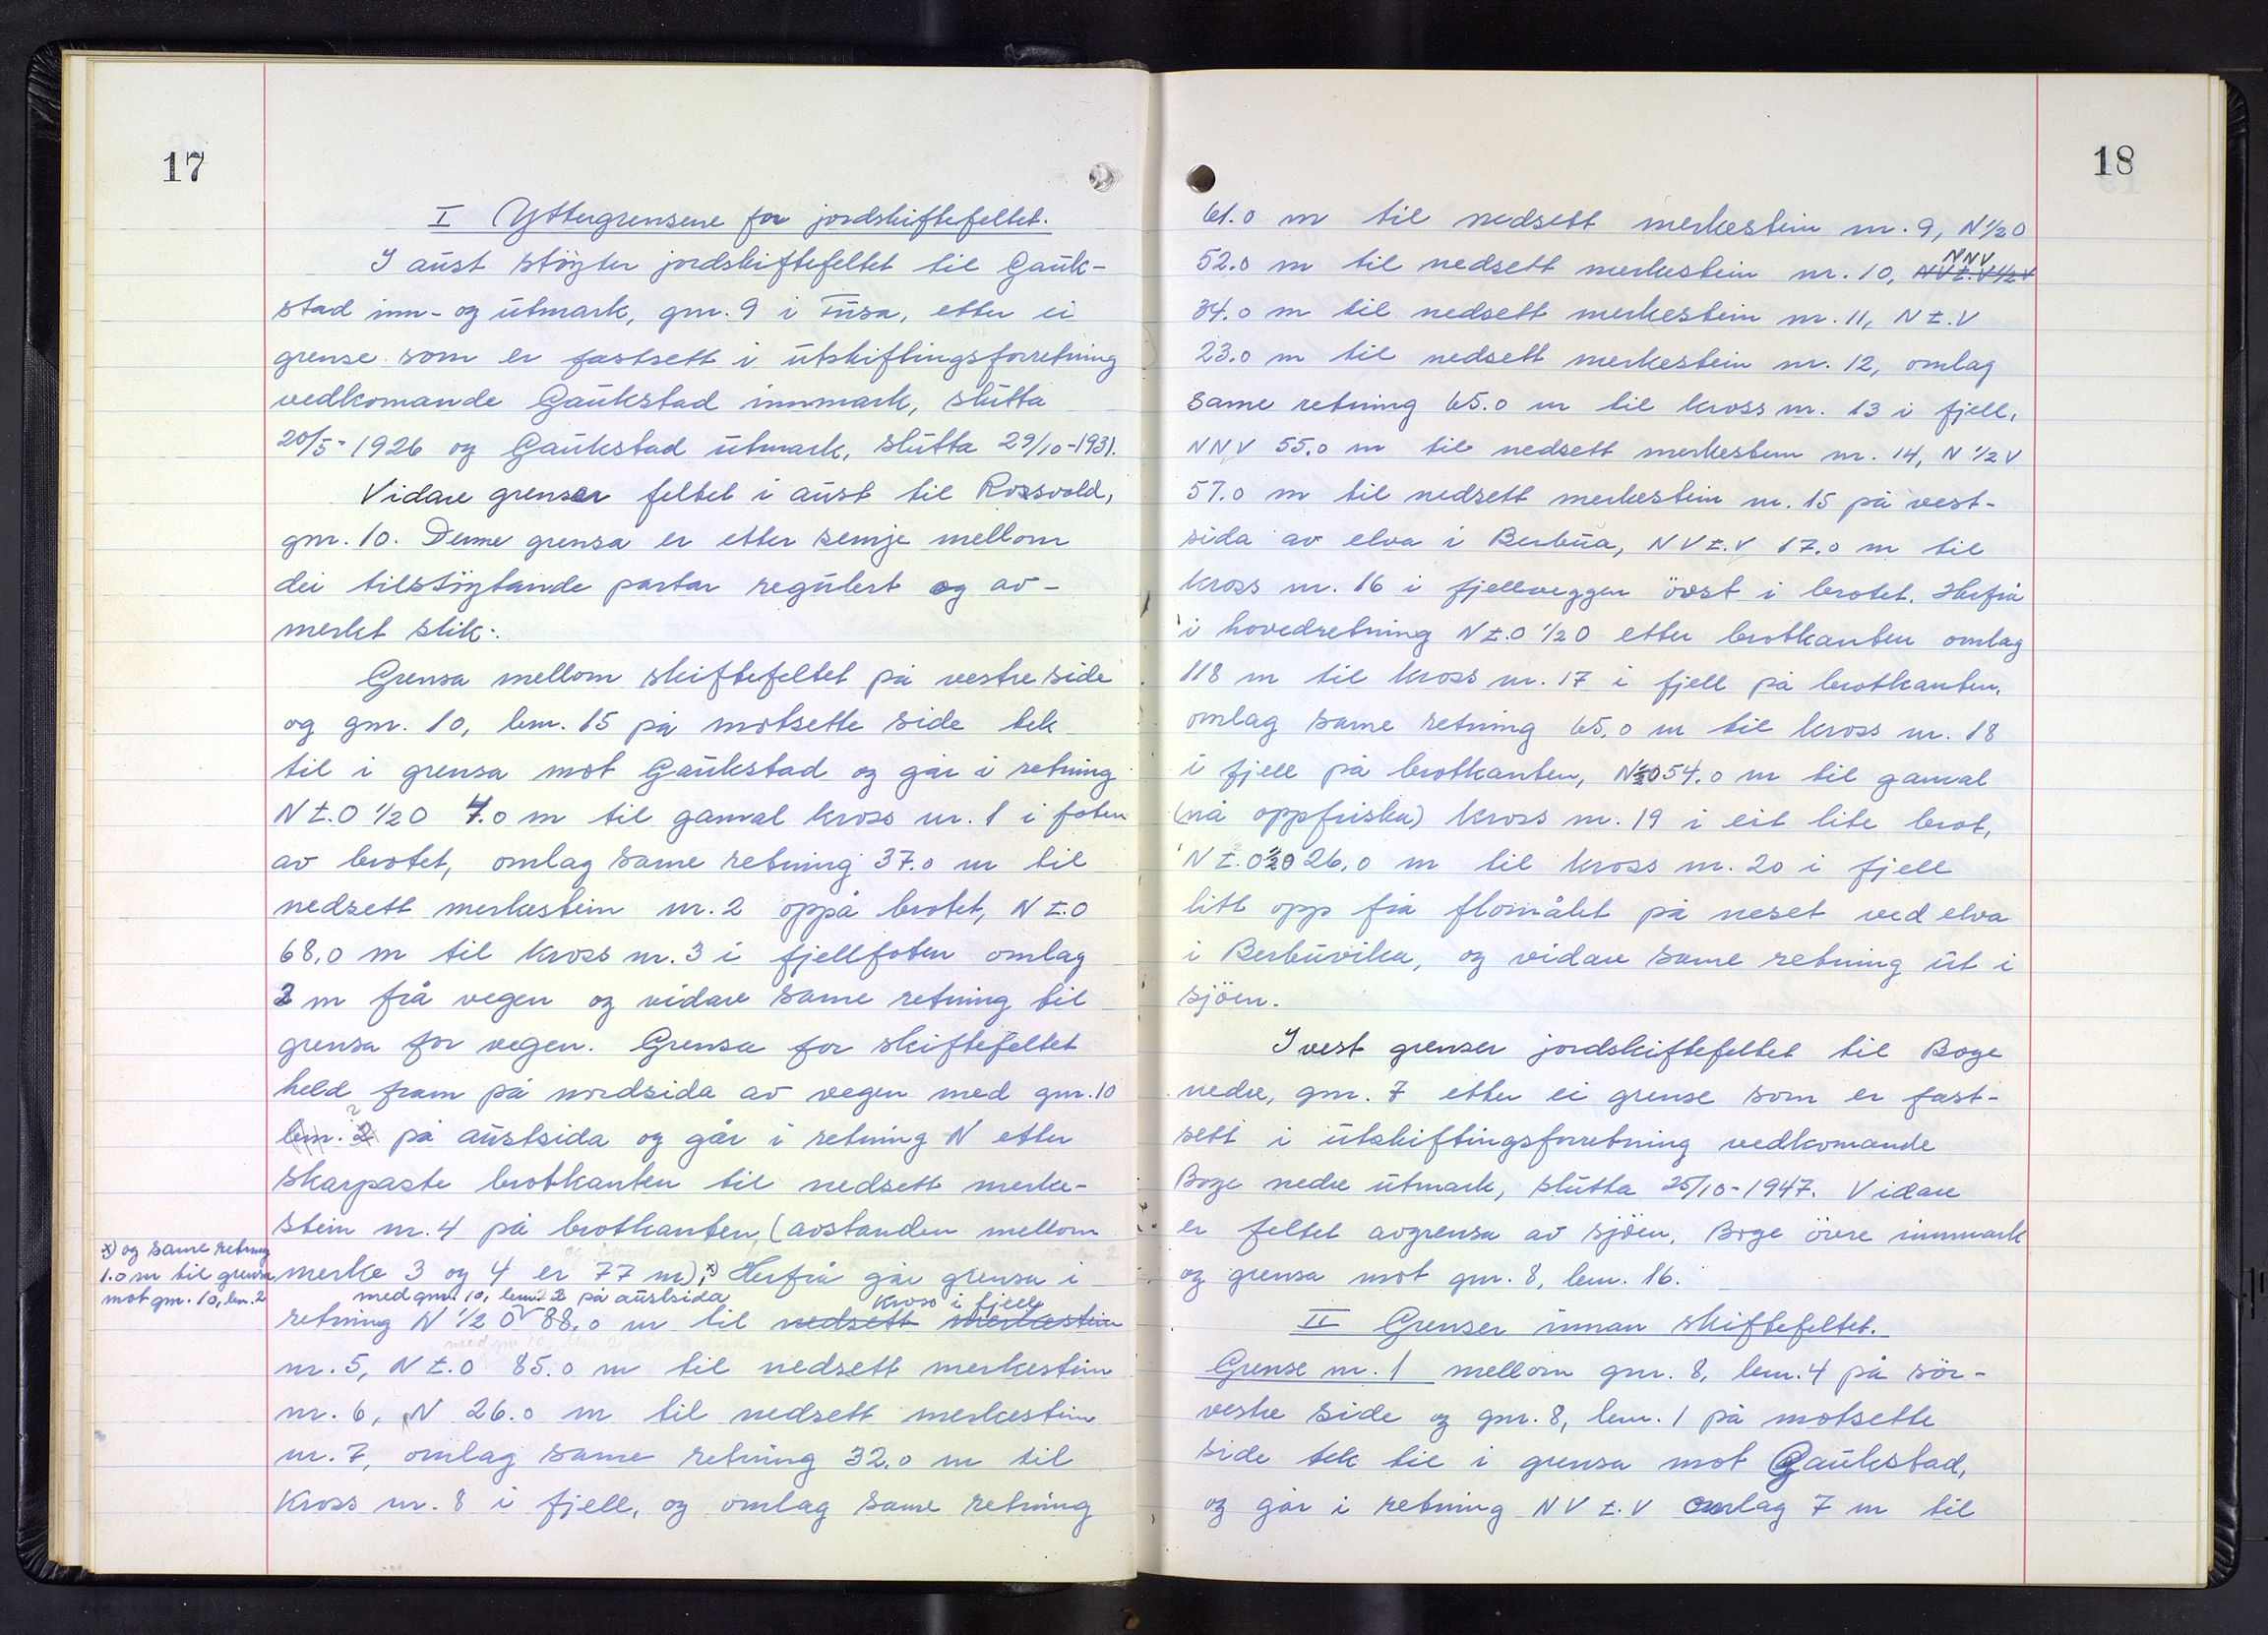 17
I Yttergrensene for jordskiftefeltet.
I aust støyter jordskiftefeltet til Gauk-
stad inn- og utmark, gnr. 9 i Fusa, etter ei
grense som er fastsett i utskiftingsforretning
vedkomande Gaukstad innmark, slutta
20/5-1926 og Gaukstad utmark, slutta 29/10-1931.
Vidare grenser feltet i aust til Rossvold,
gnr. 10. Denne grensa er etter semje mellom
dei tilstøytande partar regulert og av-
merkt slik:
Grensa mellom skiftefeltet på vestre side
og gnr. 10, bnr. 15 på motsette side tek
til i grensa mot Gaukstad og går i retning
N t.O ½ O 4.0 m til gamal kross nr. 1 i foten
av brotet, omlag same retning 37.0 m til
nedsett merkestein nr. 2 oppå brotet, N t.O
68.0 m til kross nr. 3 i fjellfoten omlag
2 m frå vegen og vidare same retning til
grensa for vegen. Grensa for skiftefeltet
held fram på nordsida av vegen med gnr. 10
bnr. 2 på austsida og går i retning N etter
skarpaste brotkanten til nedsett merke-
stein nr. 4 på brotkanten, (avstanden mellom
x) og same retning
1.0 m til grensa
mot gnr. 10, bnr. 2
merke 3 og 4 er 77 m), x) Herfrå går grensa i
med gnr. 10, bnr. 2 på austsida kross i fjell
retning N ½ O 88.0 m til nedsett merkestein
nr. 5, N t.O 85.0 m til nedsett merkestein
nr. 6, N 26.0 m til nedsett merkestein
nr. 7, omlag same retning 32.0 m til
kross nr. 8 i fjell, og omlag same retning
18
61.0 m til nedsett merkestein nr. 9, N ½ O
NNV
52.0 m til nedsett merkestein nr. 10, NV t.V ½ V
34.0 m til nedsett merkestein nr. 11, N t.V
23.0 m til nedsett merkestein nr. 12, omlag
same retning 65.0 m til kross nr. 13 i fjell,
NNV 55.0 m til nedsett merkestein nr. 14, N ½ V
57.0 m til nedsett merkestein nr. 15 på vest-
sida av elva i Berbua, NV t.V 17.0 m til
kross nr. 16 i fjellveggen övst i brotet. Herfrå
i hovedretning N t.O ½ O etter brotkanten omlag
118 m til kross nr. 17 i fjell på brotkanten,
omlag same retning 65.0 m til kross nr. 18
i fjell på brotkanten, N ½ O 54.0 m til gamal
(nå oppfriska) kross nr. 19 i eit lite brot,
N t.O ½ O 26.0 m til kross nr. 20 i fjell
litt opp frå flomålet på neset ved elva
i Berbuvika, og vidare same retning ut i
sjöen.
I vest grenser jordskiftefeltet til Boge
nedre, gnr. 7 etter ei grense som er fast-
sett i utskiftingsforretning vedkomande
Boge nedre utmark, slutta 25/10-1947. Vidare
er feltet avgrensa av sjöen, Boge övre innmark
og grensa mot gnr. 8, bnr. 16.
II Grenser innan skiftefeltet.
Grense nr. 1 mellom gnr. 8, bnr. 4 på sör-
vestre side og gnr. 8, bnr. 1 på motsette
side tek til i grensa mot Gaukstad,
og går i retning NV t.V omlag 7 m til